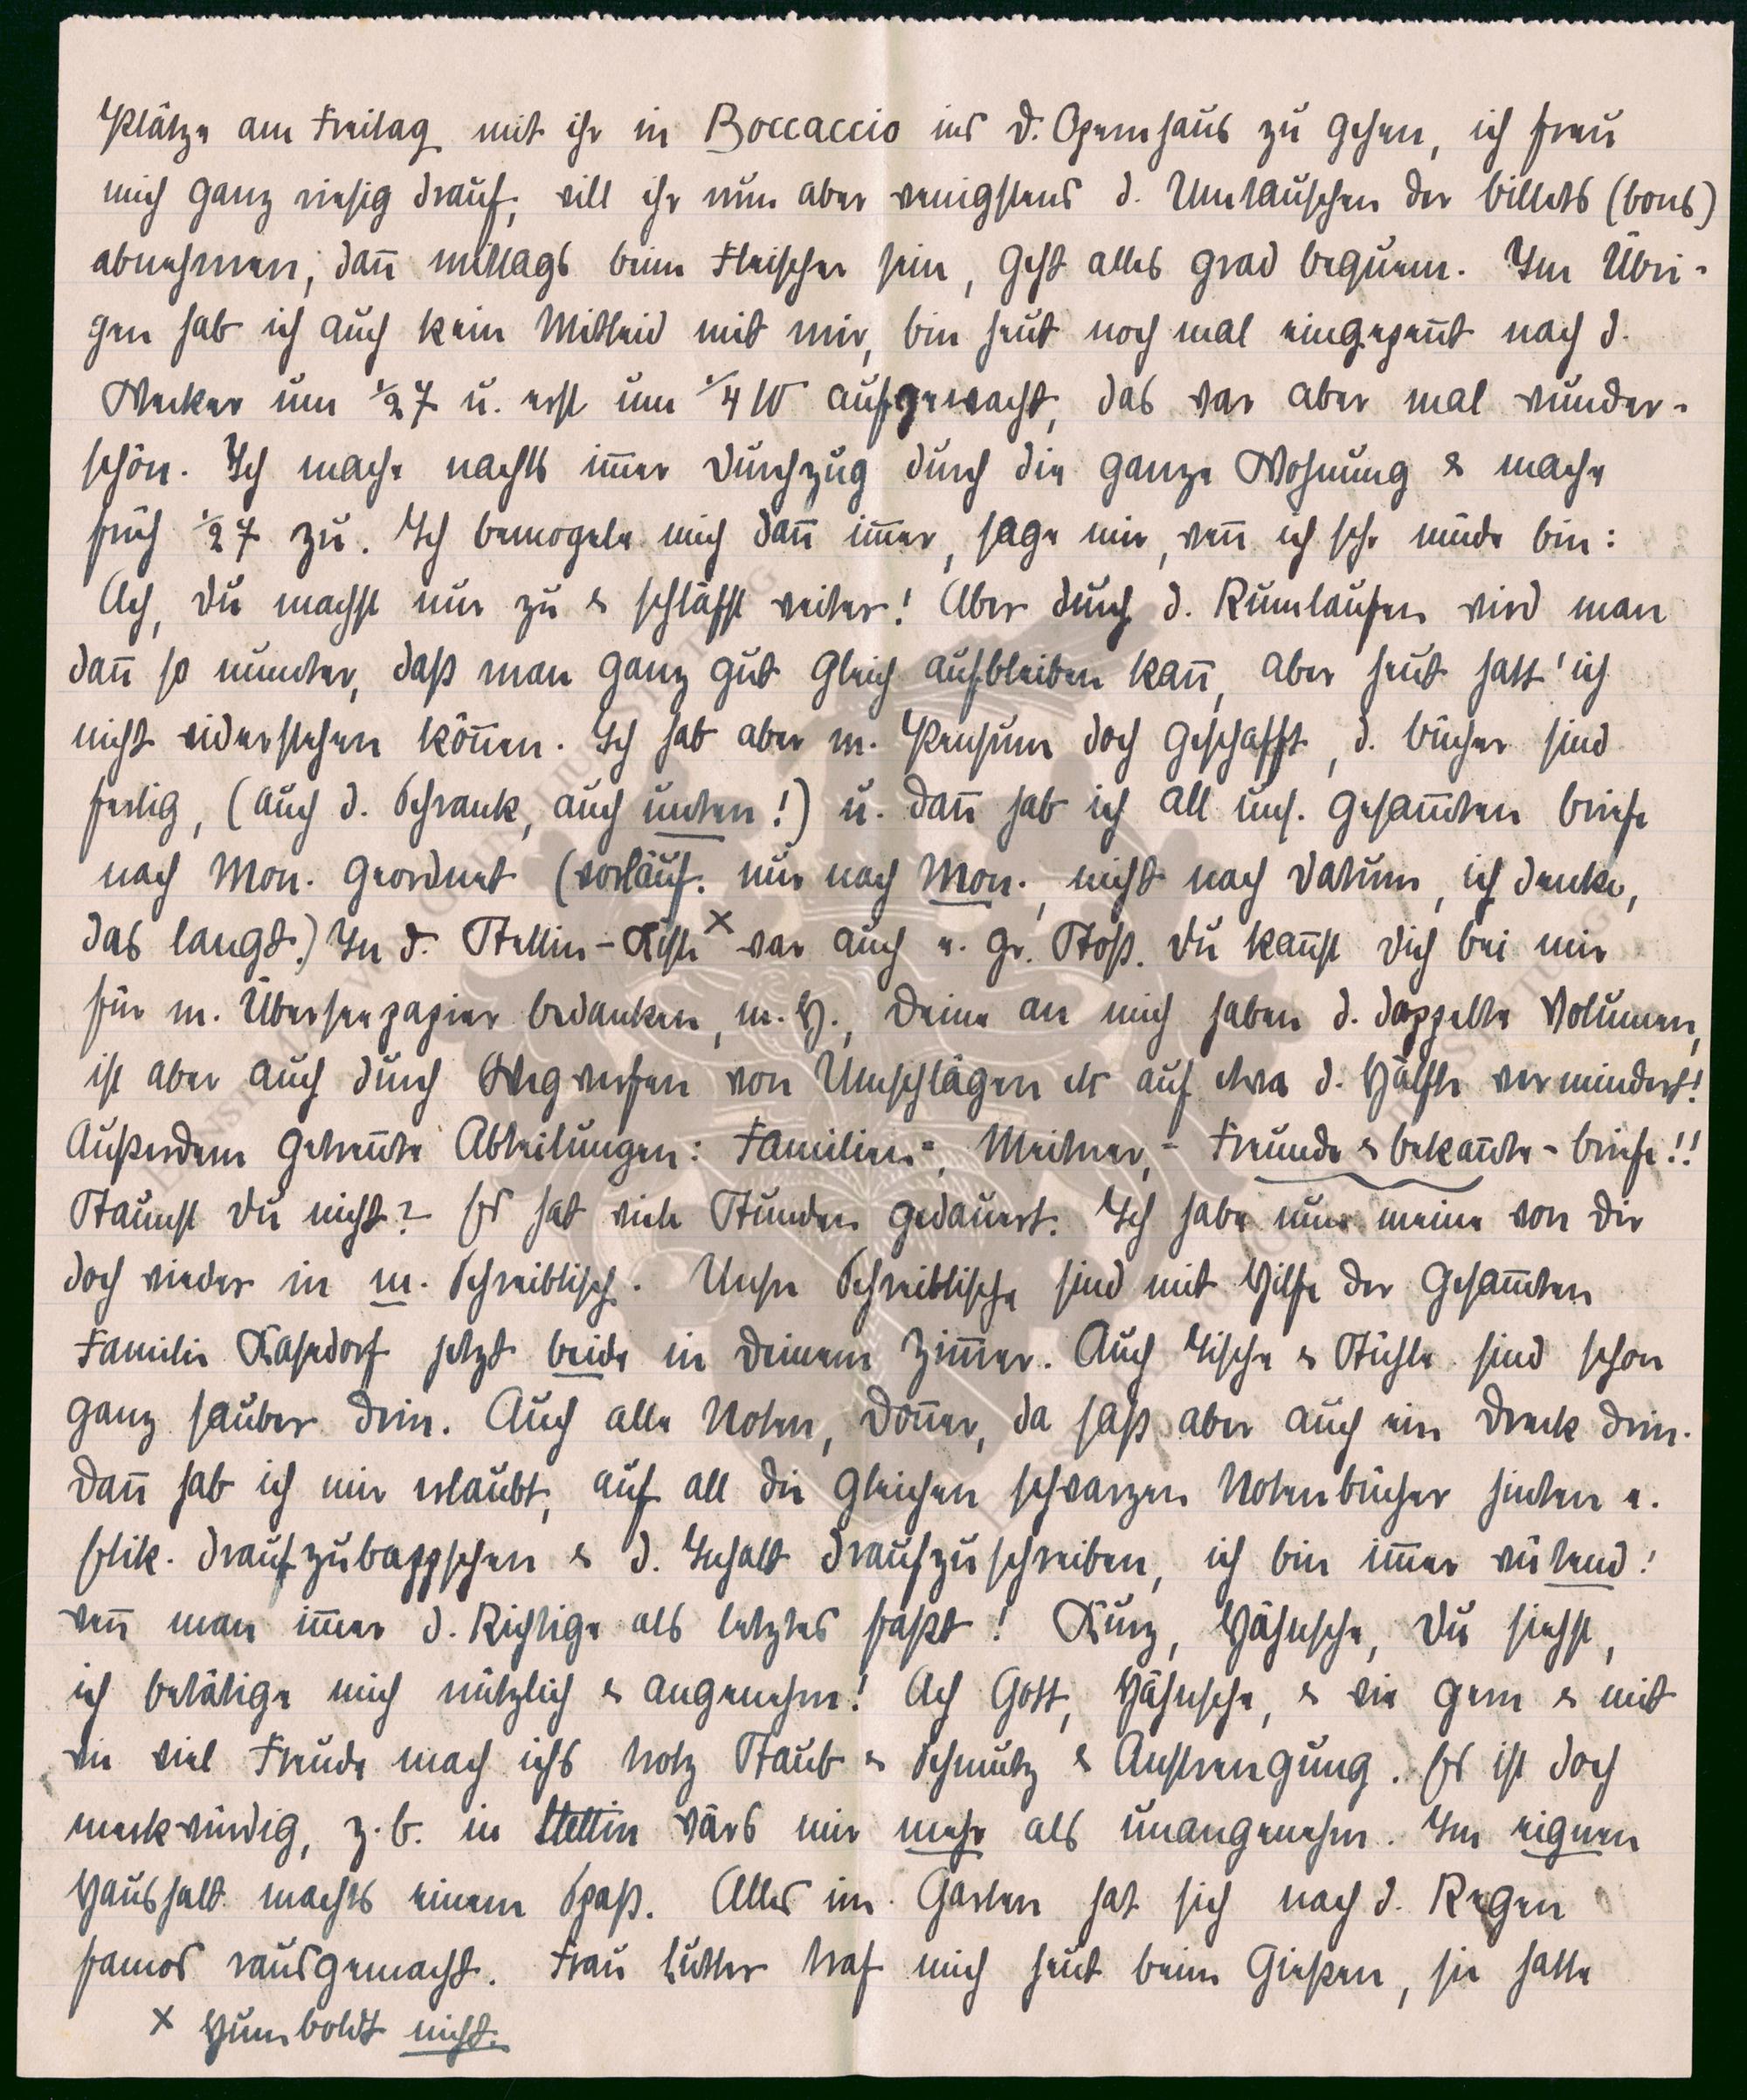 Plätze am Freitag mit ihr in Boccaccio ins d. Opernhaus zu gehen, ich freu
mich ganz riesig drauf, will ihr nun aber wenigstens d. Umtauschen der Billets (bons)
abnehmen, dann mittags beim Fleischer sein, geht alles grad bequem. Im Übri-
gen hab ich auch kein Mitleid mit mir, bin heut noch mal eingepennt nach d.
Wecker um 1/2 7 u. erst um 1/4 10 aufgewacht, das war aber mal wunder-
schön. Ich mache nachts immer Durchzug durch die ganze Wohnung & mache
früh 1/2 7 zu. Ich bemogele mich dann immer, sage mir, wenn ich sehr müde bin:
Ach, Du machst nur zu & schläfst weiter! Aber durch d. Rumlaufen wird man
dann so munter, daß man ganz gut gleich aufbleiben kann, aber heut hatt' ich
nicht widerstehen können. Ich hab aber m. Pensum doch geschafft, d. Bücher sind
fertig, (auch d. Schrank, auch unten!) u. dann hab ich all uns. gesammten Briefe
nach Mon. geordnet (vorläuf. nur nach Mon., nicht nach Datum, ich denke,
das langt.) In d. Stettin-Kiste x war auch e. gr. Stoß. Du kannst Dich bei mir
für m. Überseepapier bedanken, m. H., Deine an mich haben d. doppelte Volumen,
ist aber auch durch Wegwerfen von Umschlägen etc auf etwa d. Hälfte vermindert!
Außerdem getrennte Abteilungen: Familien-, Meitner,- Freunde & Bekannte-Briefe!!
Staunst Du nicht? Es hat viele Stunden gedauert. Ich habe nun meine von Dir
doch wieder in m. Schreibtisch. Unsre Schreibtische sind mit Hilfe der gesammten
Familie Kasedorf jetzt beide in Deinem Zimmer. Auch Tische & Stühle sind schon
ganz sauber drin. Auch alle Noten, Donner, da saß aber auch ein Dreck drin.
Dann hab ich mir erlaubt, auf all die gleichen schwarzen Notenbücher hinten e.
Etik. draufzubappschen & d. Inhalt draufzuschreiben, ich bin immer wütend!
wenn man immer d. Richtige als letztes faßt! Kurz, Hähnsche, Du siehst,
ich betätige mich nützlich & angenehm! Ach Gott, Hähnsche, & wie gern & mit
wie viel Freude mach ichs trotz Staub & Schmutz & Anstrengung. Es ist doch
merkwürdig, z.B. in Stettin wärs mir mehr als unangenehm. Im eignen
Haushalt machts einem Spaß. Alles im Garten hat sich nach d. Regen
famos rausgemacht. Frau Lütter traf mich heut beim Gießen, sie hatte
x Humboldt nicht.